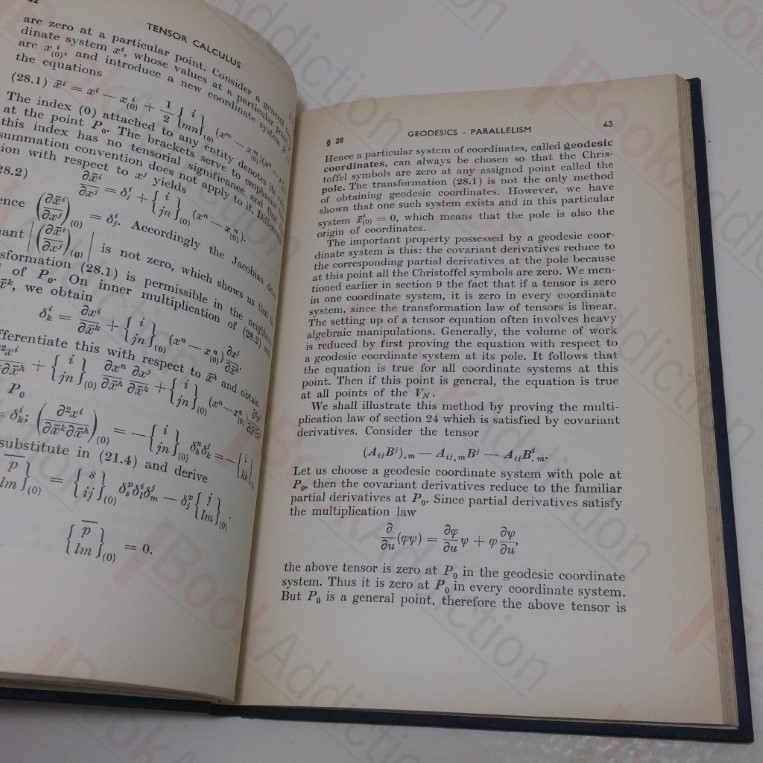 42
TENSOR CALCULUS
are zero at a particular point. Consider a general
dinate system xⁱ, whose values at a particular
are xⁱ₍₀₎, and introduce a new coordinate system
the equations
(28.1) x̄ⁱ = xⁱ − xⁱ₍₀₎ + 1/2 {i mn}₍₀₎ (xᵐ − xᵐ₍₀₎)(xⁿ
The index (0) attached to any entity denotes its
at the point P₀. The brackets serve to emphasise
this index has no tensorial significance and that
summation convention does not apply to it.
ion with respect to xʲ yields
28.2) ∂x̄ⁱ/∂xʲ = δⁱⱼ + {i jn}₍₀₎ (xⁿ − xⁿ₍₀₎).
ence (∂x̄ⁱ/∂xʲ)₍₀₎ = δⁱⱼ. Accordingly the Jacobian
nant |(∂x̄ⁱ/∂xʲ)₍₀₎| is not zero, which shows us that
sformation (28.1) is permissible in the
of P₀. On inner multiplication of (28.2)
x̄ᵏ, we obtain
δⁱₖ = ∂xⁱ/∂x̄ᵏ + {i jn}₍₀₎ (xⁿ − xⁿ₍₀₎) ∂xʲ/∂x̄ᵏ.
fferentiate this with respect to x̄ʰ and obtain
²xⁱ/∂x̄ᵏ∂x̄ʰ + {i jn}₍₀₎ ∂xⁿ/∂x̄ʰ ∂xʲ/∂x̄ᵏ + {i jn}₍₀₎ (xⁿ − xⁿ₍₀₎)
P₀
= δⁱₖ; (∂²xⁱ/∂x̄ᵏ∂x̄ʰ)₍₀₎ = − {i jn}₍₀₎ δⁿₕδʲₖ = −
substitute in (21.4) and derive
{p lm}₍₀₎ = {s ij}₍₀₎ δᵖₛδⁱₗδʲₘ − δᵖⱼ {j lm}₍₀₎.
{p lm}₍₀₎ = 0.
§ 28 GEODESICS - PARALLELISM 43
Hence a particular system of coordinates, called geodesic
coordinates, can always be chosen so that the Chris-
toffel symbols are zero at any assigned point called the
pole. The transformation (28.1) is not the only method
of obtaining geodesic coordinates. However, we have
shown that one such system exists and in this particular
system x̄ⁱ₍₀₎ = 0, which means that the pole is also the
origin of coordinates.
The important property possessed by a geodesic coor-
dinate system is this: the covariant derivatives reduce to
the corresponding partial derivatives at the pole because
at this point all the Christoffel symbols are zero. We men-
tioned earlier in section 9 the fact that if a tensor is zero
in one coordinate system, it is zero in every coordinate
system, since the transformation law of tensors is linear.
The setting up of a tensor equation often involves heavy
algebraic manipulations. Generally, the volume of work
is reduced by first proving the equation with respect to
a geodesic coordinate system at its pole. It follows that
the equation is true for all coordinate systems at this
point. Then if this point is general, the equation is true
at all points of the V_N.
We shall illustrate this method by proving the multi-
plication law of section 24 which is satisfied by covariant
derivatives. Consider the tensor
(AᵢⱼBʲ),ₘ − Aᵢⱼ,ₘBʲ − AᵢⱼBʲ,ₘ.
Let us choose a geodesic coordinate system with pole at
P₀, then the covariant derivatives reduce to the familiar
partial derivatives at P₀. Since partial derivatives satisfy
the multiplication law
∂/∂u (φψ) = ∂φ/∂u ψ + φ ∂ψ/∂u,
the above tensor is zero at P₀ in the geodesic coordinate
system. Thus it is zero at P₀ in every coordinate system.
But P₀ is a general point, therefore the above tensor is
BookAddiction